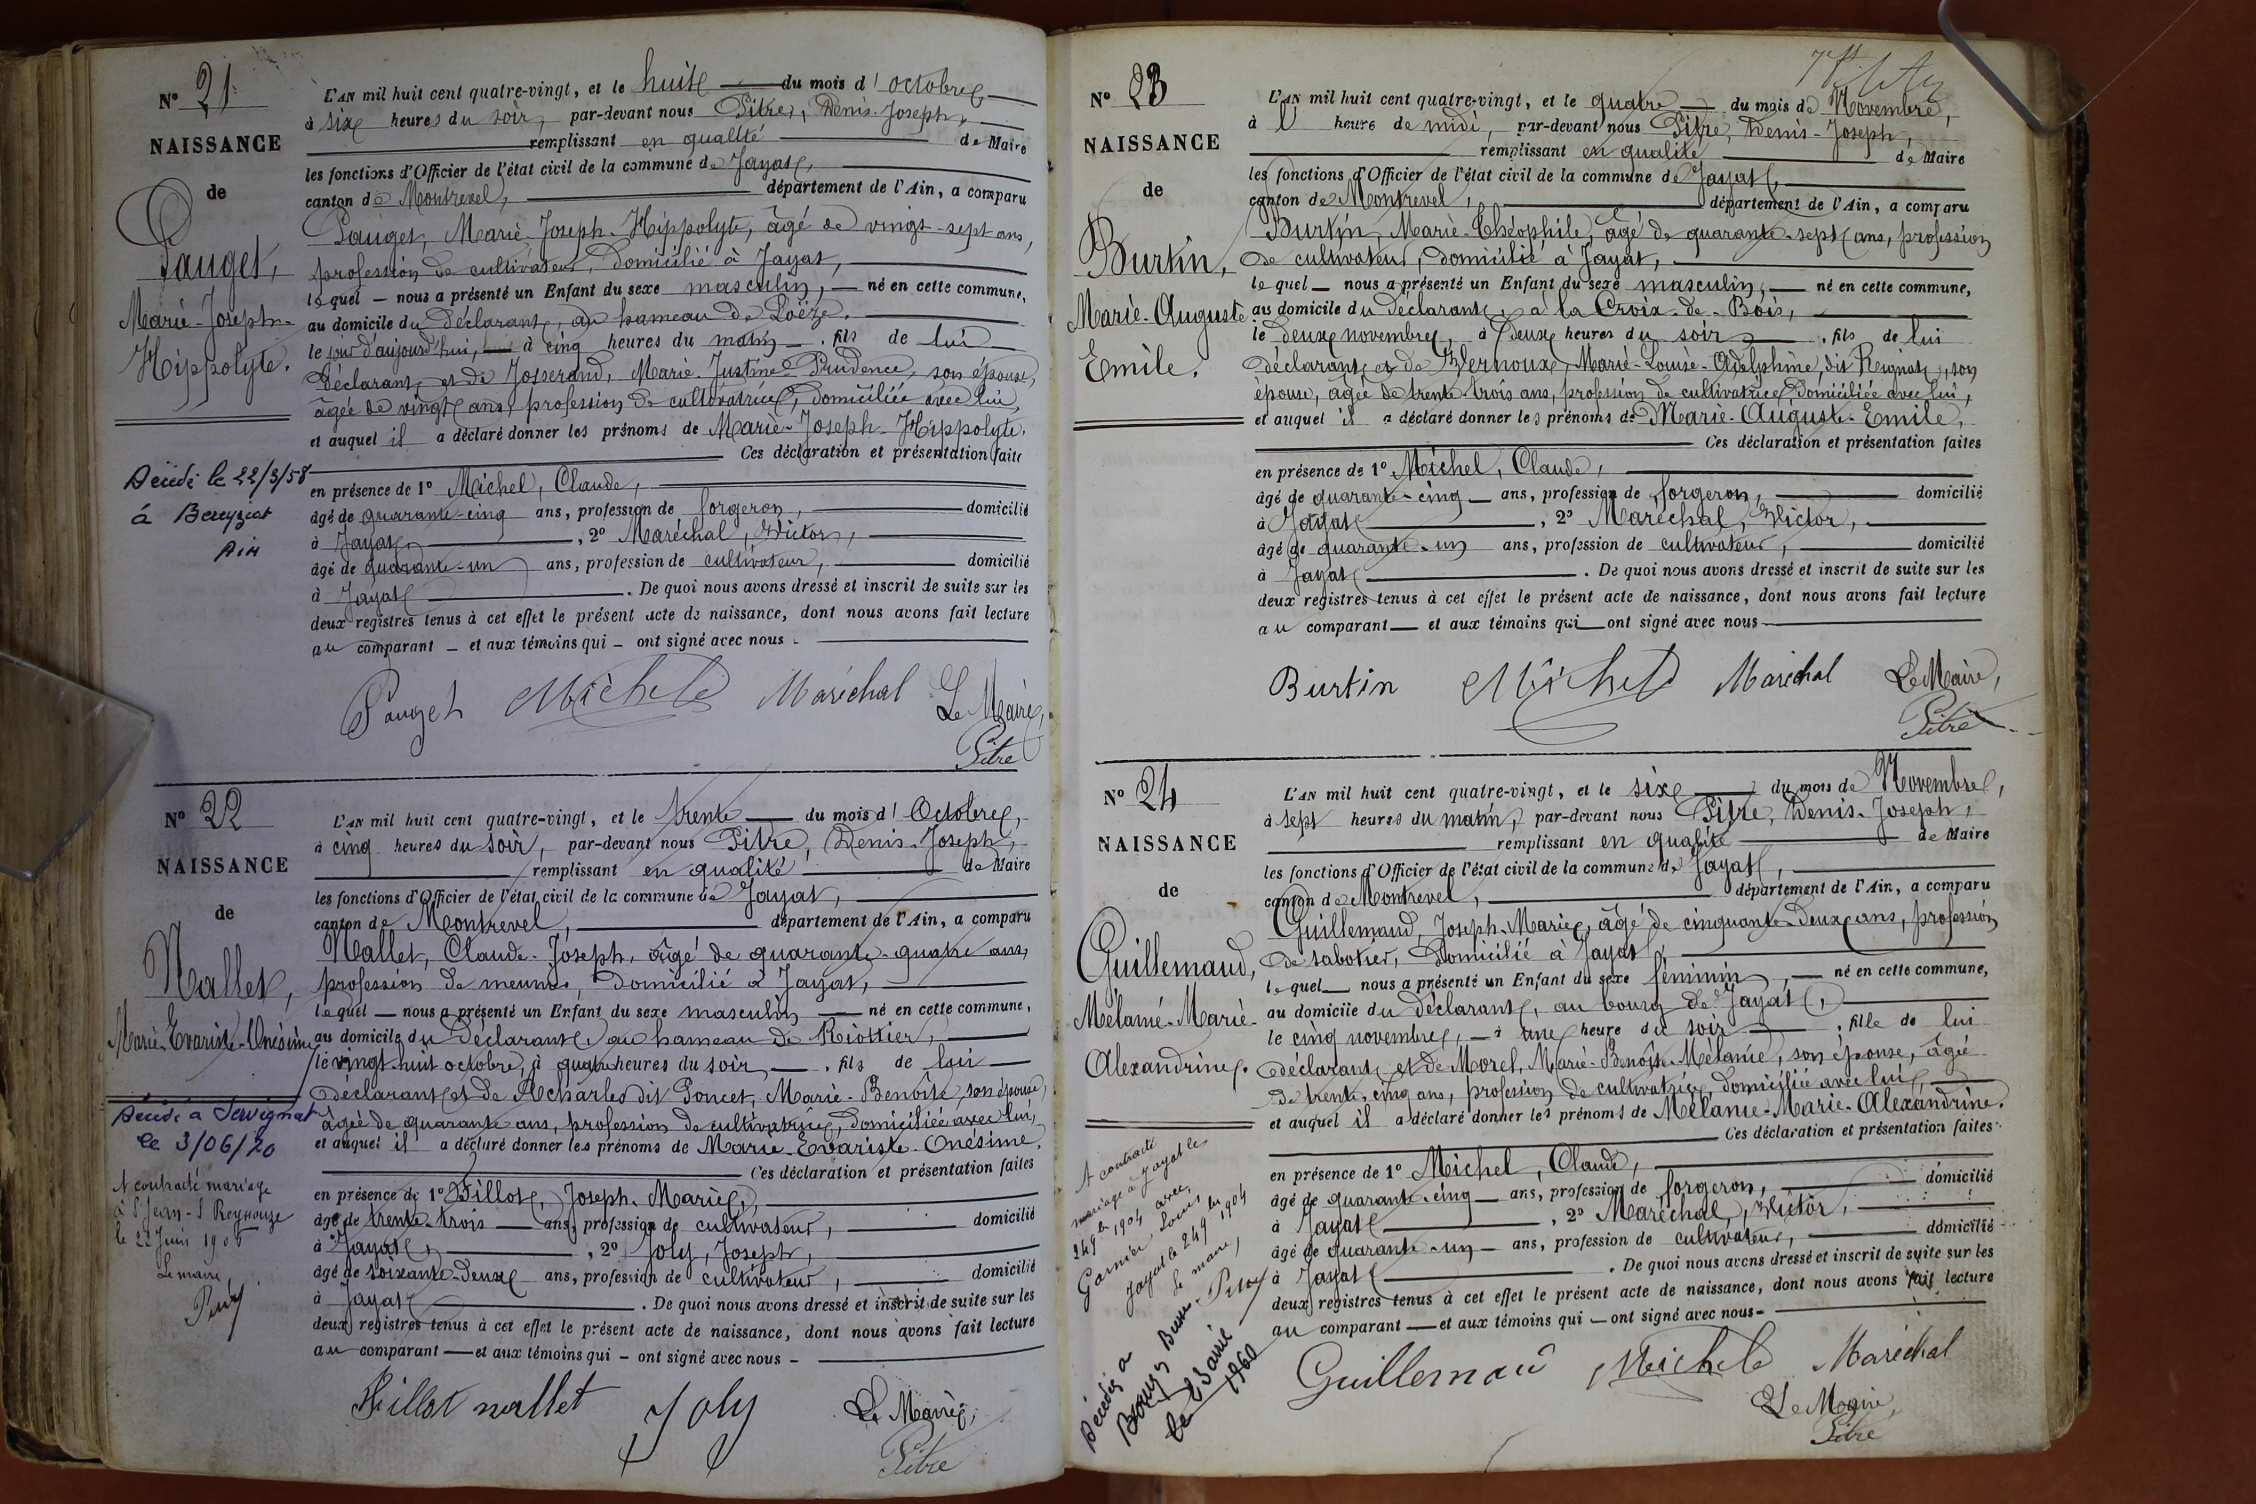 N° 21
NAISSANCE
de
Pauget,
Marie-Joseph-
Hippolyte.
Décédé le 22/3/58
à Bereyziat
Ain
L'AN mil huit cent quatre-vingt, et le huit du mois d'octobre
à six heures du soir, par-devant nous Pitre, Denis-Joseph,
remplissant en qualité de Maire
les fonctions d'Officier de l'état civil de la commune de Jayat,
canton de Montrevel, département de l'Ain, a comparu
Pauget, Marie-Joseph-Hippolyte, âgé de vingt-sept ans,
profession de cultivateur, domicilié à Jayat,
lequel nous a présenté un Enfant du sexe masculin, né en cette commune,
au domicile du déclarant, au hameau de Loëze,
le jour d'aujourd'hui, à cinq heures du matin, fils de lui
déclarant et de Josserand, Marie-Justine-Prudence, son épouse,
âgée de vingt ans, profession de cultivatrice, domiciliée avec lui,
et auquel il a déclaré donner les prénoms de Marie-Joseph-Hippolyte.
Ces déclaration et présentation faite
en présence de 1° Michel, Claude,
âgé de quarante-cinq ans, profession de forgeron, domicilié
à Jayat, 2° Maréchal, Victor,
âgé de quarante-un ans, profession de cultivateur, domicilié
à Jayat. De quoi nous avons dressé et inscrit de suite sur les
deux registres tenus à cet effet le présent acte de naissance, dont nous avons fait lecture
au comparant et aux témoins qui ont signé avec nous
Pauget Michel Maréchal Le Maire,
Pitre
N° 22
NAISSANCE
de
Mallet,
Marie-Evariste-Onésime
Décédé a Servignat
le 3/06/20
A contracté mariage
à St Jean-s Reyssouze
le 22 Juin 1906
Le maire,
L'AN mil huit cent quatre-vingt, et le trente du mois d'Octobre,
à cinq heures du soir, par-devant nous Pitre, Denis-Joseph,
remplissant en qualité de Maire
les fonctions d'Officier de l'état civil de la commune de Jayat,
canton de Montrevel, département de l'Ain, a comparu
Mallet, Claude-Joseph, âgé de quarante-quatre ans,
profession de meunier, domicilié à Jayat,
lequel nous a présenté un Enfant du sexe masculin né en cette commune,
au domicile du déclarant, au hameau de Riottier,
le vingt-huit octobre, à quatre heures du soir, fils de lui
déclarant et de Charles dit Poncet, Marie-Benoîte, son épouse,
âgée de quarante ans, profession de cultivatrice, domiciliée avec lui,
et auquel il a déclaré donner les prénoms de Marie-Evariste-Onésime.
Ces déclaration et présentation faites
en présence de 1° Fillot, Joseph-Marie,
âgé de trente-trois ans, profession de cultivateur, domicilié
à Jayat, 2° Joly, Joseph,
âgé de soixante-deux ans, profession de cultivateur, domicilié
à Jayat. De quoi nous avons dressé et inscrit de suite sur les
deux registres tenus à cet effet le présent acte de naissance, dont nous avons fait lecture
au comparant et aux témoins qui ont signé avec nous
Fillot mallet Joly Le Maire,
Pitre
N° 23
NAISSANCE
de
Burtin,
Marie-Auguste
Emile.
L'AN mil huit cent quatre-vingt, et le quatre du mois de Novembre,
à l' heure de midi, par-devant nous Pitre, Denis-Joseph,
remplissant en qualité de Maire
les fonctions d'Officier de l'état civil de la commune de Jayat,
canton de Montrevel, département de l'Ain, a comparu
Burtin, Marie-Théophile, âgé de quarante-sept ans, profession
de cultivateur, domicilié à Jayat,
lequel nous a présenté un Enfant du sexe masculin, né en cette commune,
au domicile du déclarant, à la Croix-de-Bois,
le deux novembre, à deux heures du soir, fils de lui
déclarant et de Vernoux, Marie-Louise-Adelphine, dit Reignat, son
épouse, âgée de trente-trois ans, profession de cultivatrice, domiciliée avec lui,
et auquel il a déclaré donner les prénoms de Marie-Auguste-Emile,
Ces déclaration et présentation faites
en présence de 1° Michel, Claude,
âgé de quarante-cinq ans, profession de forgeron, domicilié
à Jayat, 2° Maréchal, Victor,
âgé de quarante-un ans, profession de cultivateur, domicilié
à Jayat. De quoi nous avons dressé et inscrit de suite sur les
deux registres tenus à cet effet le présent acte de naissance, dont nous avons fait lecture
au comparant et aux témoins qui ont signé avec nous
Burtin Michel Maréchal Le Maire,
Pitre
N° 24
NAISSANCE
de
Guillemaud,
Mélanie-Marie-
Alexandrine.
A contracté
mariage à Jayat le
24 9bre 1904 avec
Garnier Louis
Jayat le 24 9bre 1904
Le maire,
Décédée a
Bourg Bresse
le 23 avril
1960
L'AN mil huit cent quatre-vingt, et le six du mois de Novembre,
à sept heures du matin, par-devant nous Pitre, Denis-Joseph,
remplissant en qualité de Maire
les fonctions d'Officier de l'état civil de la commune de Jayat,
canton de Montrevel, département de l'Ain, a comparu
Guillemaud, Joseph-Marie, âgé de cinquante-deux ans, profession
de sabotier, domicilié à Jayat,
lequel nous a présenté un Enfant du sexe féminin, né en cette commune,
au domicile du déclarant, au bourg de Jayat,
le cinq novembre, à une heure du soir, fille de lui
déclarant et de Morel, Marie-Benoîte-Mélanie, son épouse, âgée
de trente-cinq ans, profession de cultivatrice, domiciliée avec lui,
et auquel il a déclaré donner les prénoms de Mélanie-Marie-Alexandrine.
Ces déclaration et présentation faites
en présence de 1° Michel, Claude,
âgé de quarante-cinq ans, profession de forgeron, domicilié
à Jayat, 2° Maréchal, Victor,
âgé de quarante-un ans, profession de cultivateur, domicilié
à Jayat. De quoi nous avons dressé et inscrit de suite sur les
deux registres tenus à cet effet le présent acte de naissance, dont nous avons fait lecture
au comparant et aux témoins qui ont signé avec nous
Guillemaud Michel Maréchal
Le Maire,
Pitre